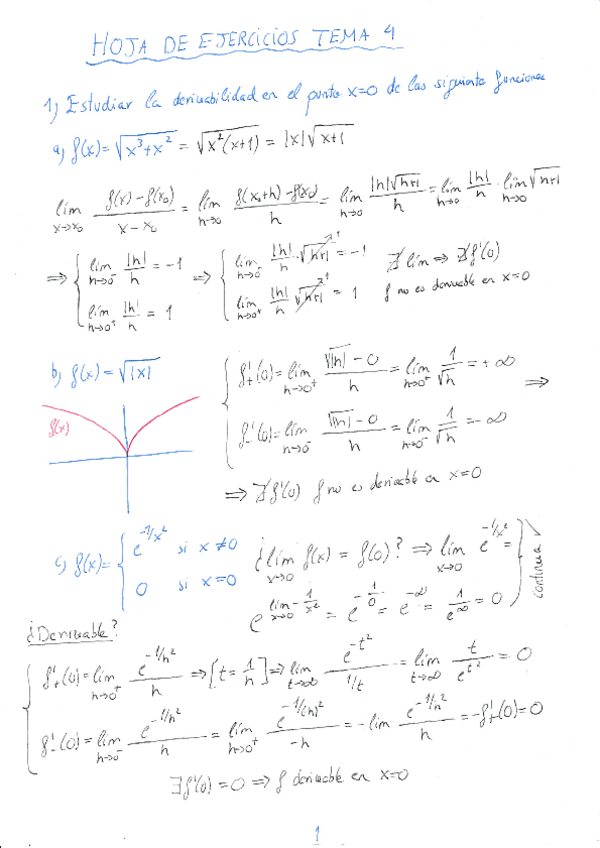 HOJA DE EJERCICIOS TEMA 4
1) Estudiar la derivabilidad en el punto x=0 de las siguiente funciones
a) f(x) = √(x³+x²) = √(x²(x+1)) = |x|√(x+1)
lím x→x₀ (f(x) - f(x₀))/(x - x₀) = lím h→0 (f(x₀+h) - f(x₀))/h = lím h→0 |h|√(h+1)/h = lím h→0 |h|/h · lím h→0 √(h+1)
⇒ { lím h→0⁻ |h|/h = -1 ⇒ { lím h→0⁻ |h|/h · √(h+1) ↗1 = -1 ∄ lím ⇒ ∄ f'(0)
lím h→0⁺ |h|/h = 1 lím h→0⁺ |h|/h √(h+1) ↗1 = 1 f no es derivable en x=0
b) f(x) = √|x|
f(x)
{ f'₊(0) = lím h→0⁺ (√|h| - 0)/h = lím h→0⁺ 1/√h = +∞ ⇒
f'₋(0) = lím h→0⁻ (√|h| - 0)/h = lím h→0⁻ 1/√h = -∞
⇒ ∄ f'(0) f no es derivable en x=0
c) f(x) = { e^(-1/x²) si x ≠ 0
0 si x = 0
¿ lím x→0 f(x) = f(0) ? ⇒ lím x→0 e^(-1/x²) =
e^(lím x→0 -1/x²) = e^(-1/0) = e^(-∞) = 1/e^∞ = 0 }
continua
¿Derivable?
{ f'₊(0) = lím h→0⁺ e^(-1/h²)/h ⇒ [t = 1/h] ⇒ lím t→∞ e^(-t²)/(1/t) = lím t→∞ t/e^(t²) = 0
f'₋(0) = lím h→0⁻ e^(-1/h²)/h = lím h→0⁺ e^(-1/(h)²)/-h = -lím e^(-1/h²)/h = -f'₊(0) = 0
∃ f'(0) = 0 ⇒ f derivable en x=0
1